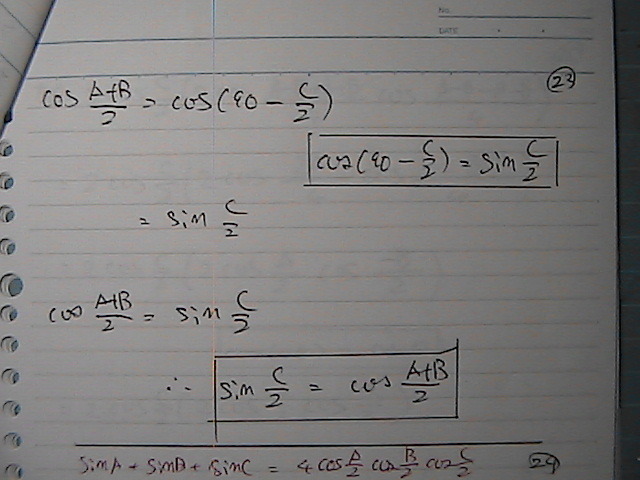 No.
DATE
㉓
cos A+B/2 = cos(90 - C/2)
cos(90 - C/2) = sin C/2
= sin C/2
cos A+B/2 = sin C/2
∴ sin C/2 = cos A+B/2
sinA + sinB + sinC = 4 cos A/2 cos B/2 cos C/2 ㉔